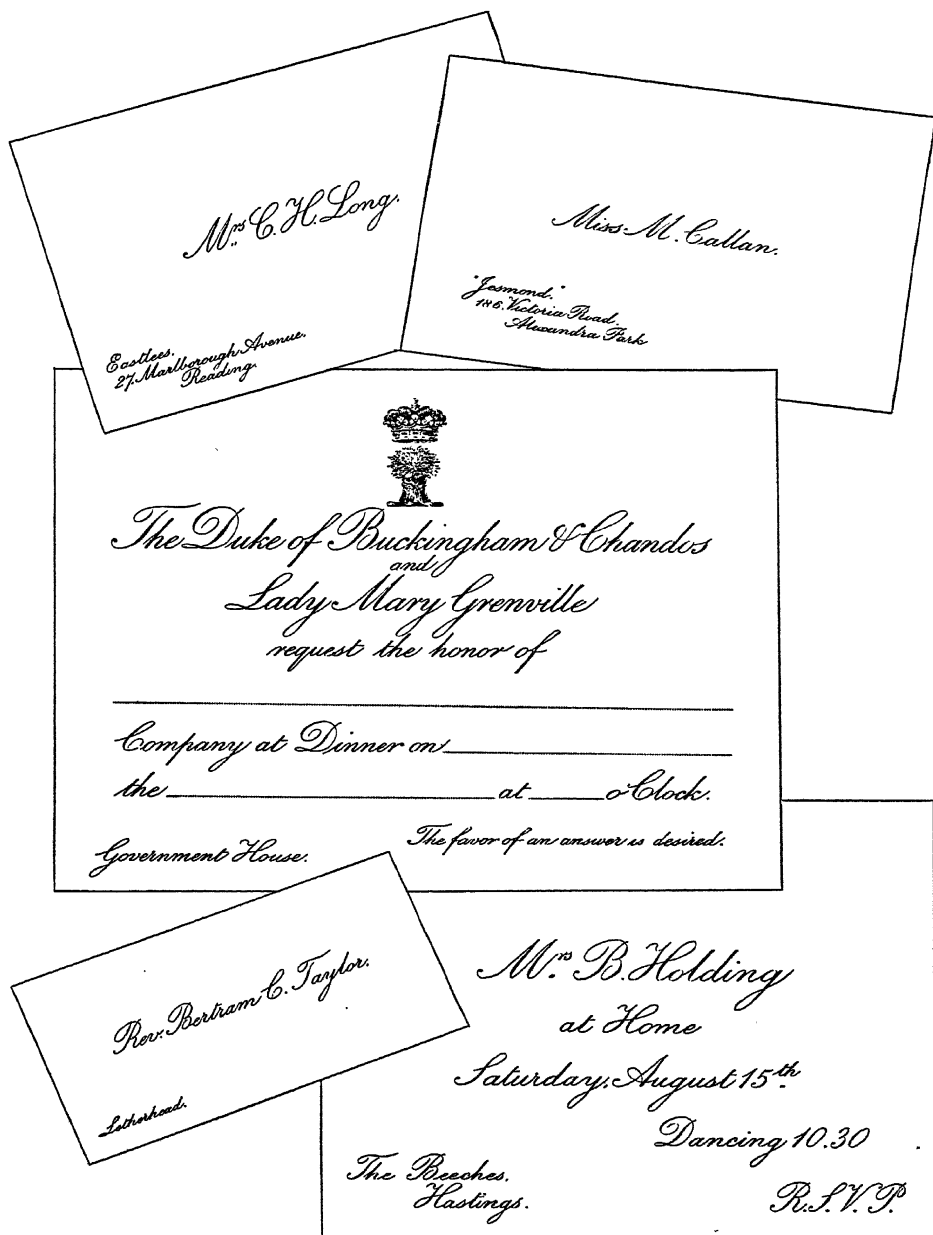 Mrs. C. H. Long.
Eastlees.
27, Marlborough Avenue.
Reading.
Miss M. Callan.
"Jesmond."
186, Victoria Road.
Alexandra Park
The Duke of Buckingham & Chandos
and
Lady Mary Grenville
request the honor of
Company at Dinner on
the at o'Clock.
Government House. The favor of an answer is desired.
Rev. Bertram C. Taylor.
Letherhead.
Mrs. B. Holding
at Home
Saturday, August 15th.
Dancing 10.30
The Beeches.
Hastings.
R.S.V.P.